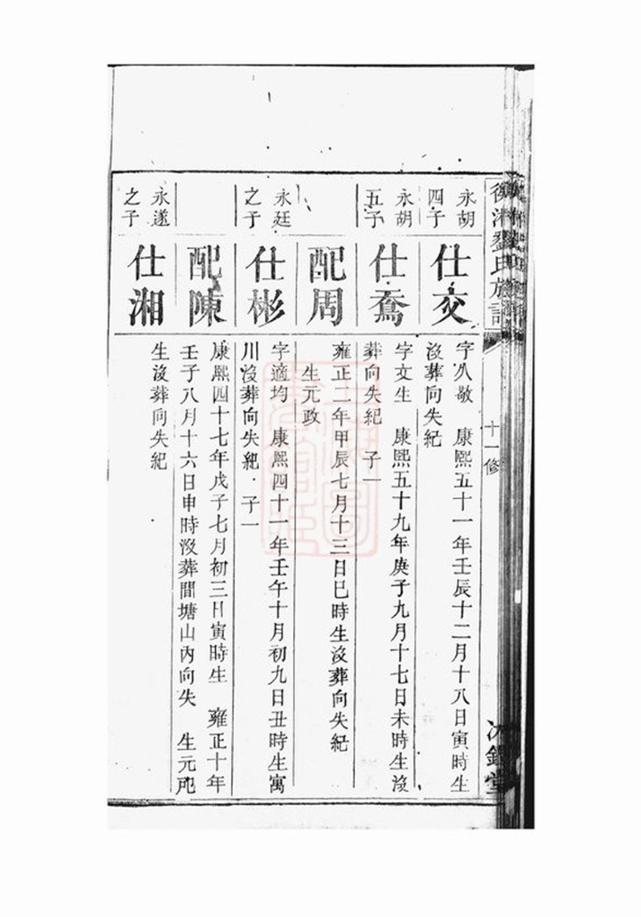 衡 劉氏族譜
十一修
鎔堂
永胡
四子
仕交
字八敬 康熙五十一年壬辰十二月十八日寅時生
沒葬向失紀
永胡
五子
仕喬
字文生 康熙五十九年庚子九月十七日未時生沒
葬向失紀 子一
配周
雍正二年甲辰七月十三日巳時生沒葬向失紀
生元政
永廷
之子
仕彬
字適均 康熙四十一年壬午十月初九日丑時生寓
川沒葬向失紀 子一
配陳
康熙四十七年戊子七月初三日寅時生 雍正十年
壬子八月十六日申時沒葬間塘山內向失 生元
永遂
之子
仕湘
生沒葬向失紀